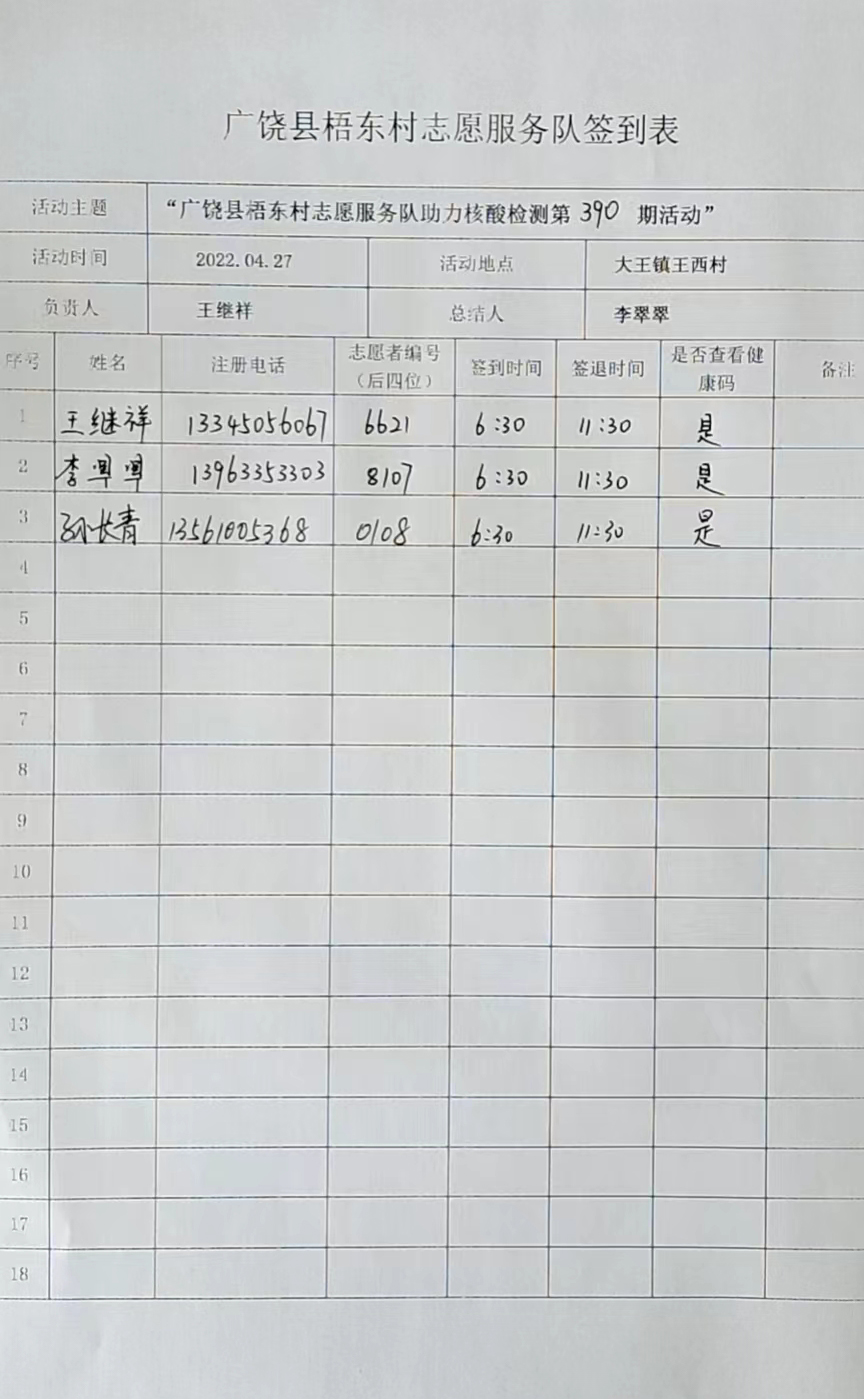 广饶县梧东村志愿服务队签到表
活动主题 “广饶县梧东村志愿服务队助力核酸检测第 390 期活动”
活动时间 2022.04.27 活动地点 大王镇王西村
负责人 王继祥 总结人 李翠翠
序号 姓名 注册电话 志愿者编号（后四位） 签到时间 签退时间 是否查看健康码 备注
1 王继祥 13345056067 6621 6:30 11:30 是
2 李 13963353303 8107 6:30 11:30 是
3 孙长青 13561005368 0108 6:30 11:30 是
4
5
6
7
8
9
10
11
12
13
14
15
16
17
18